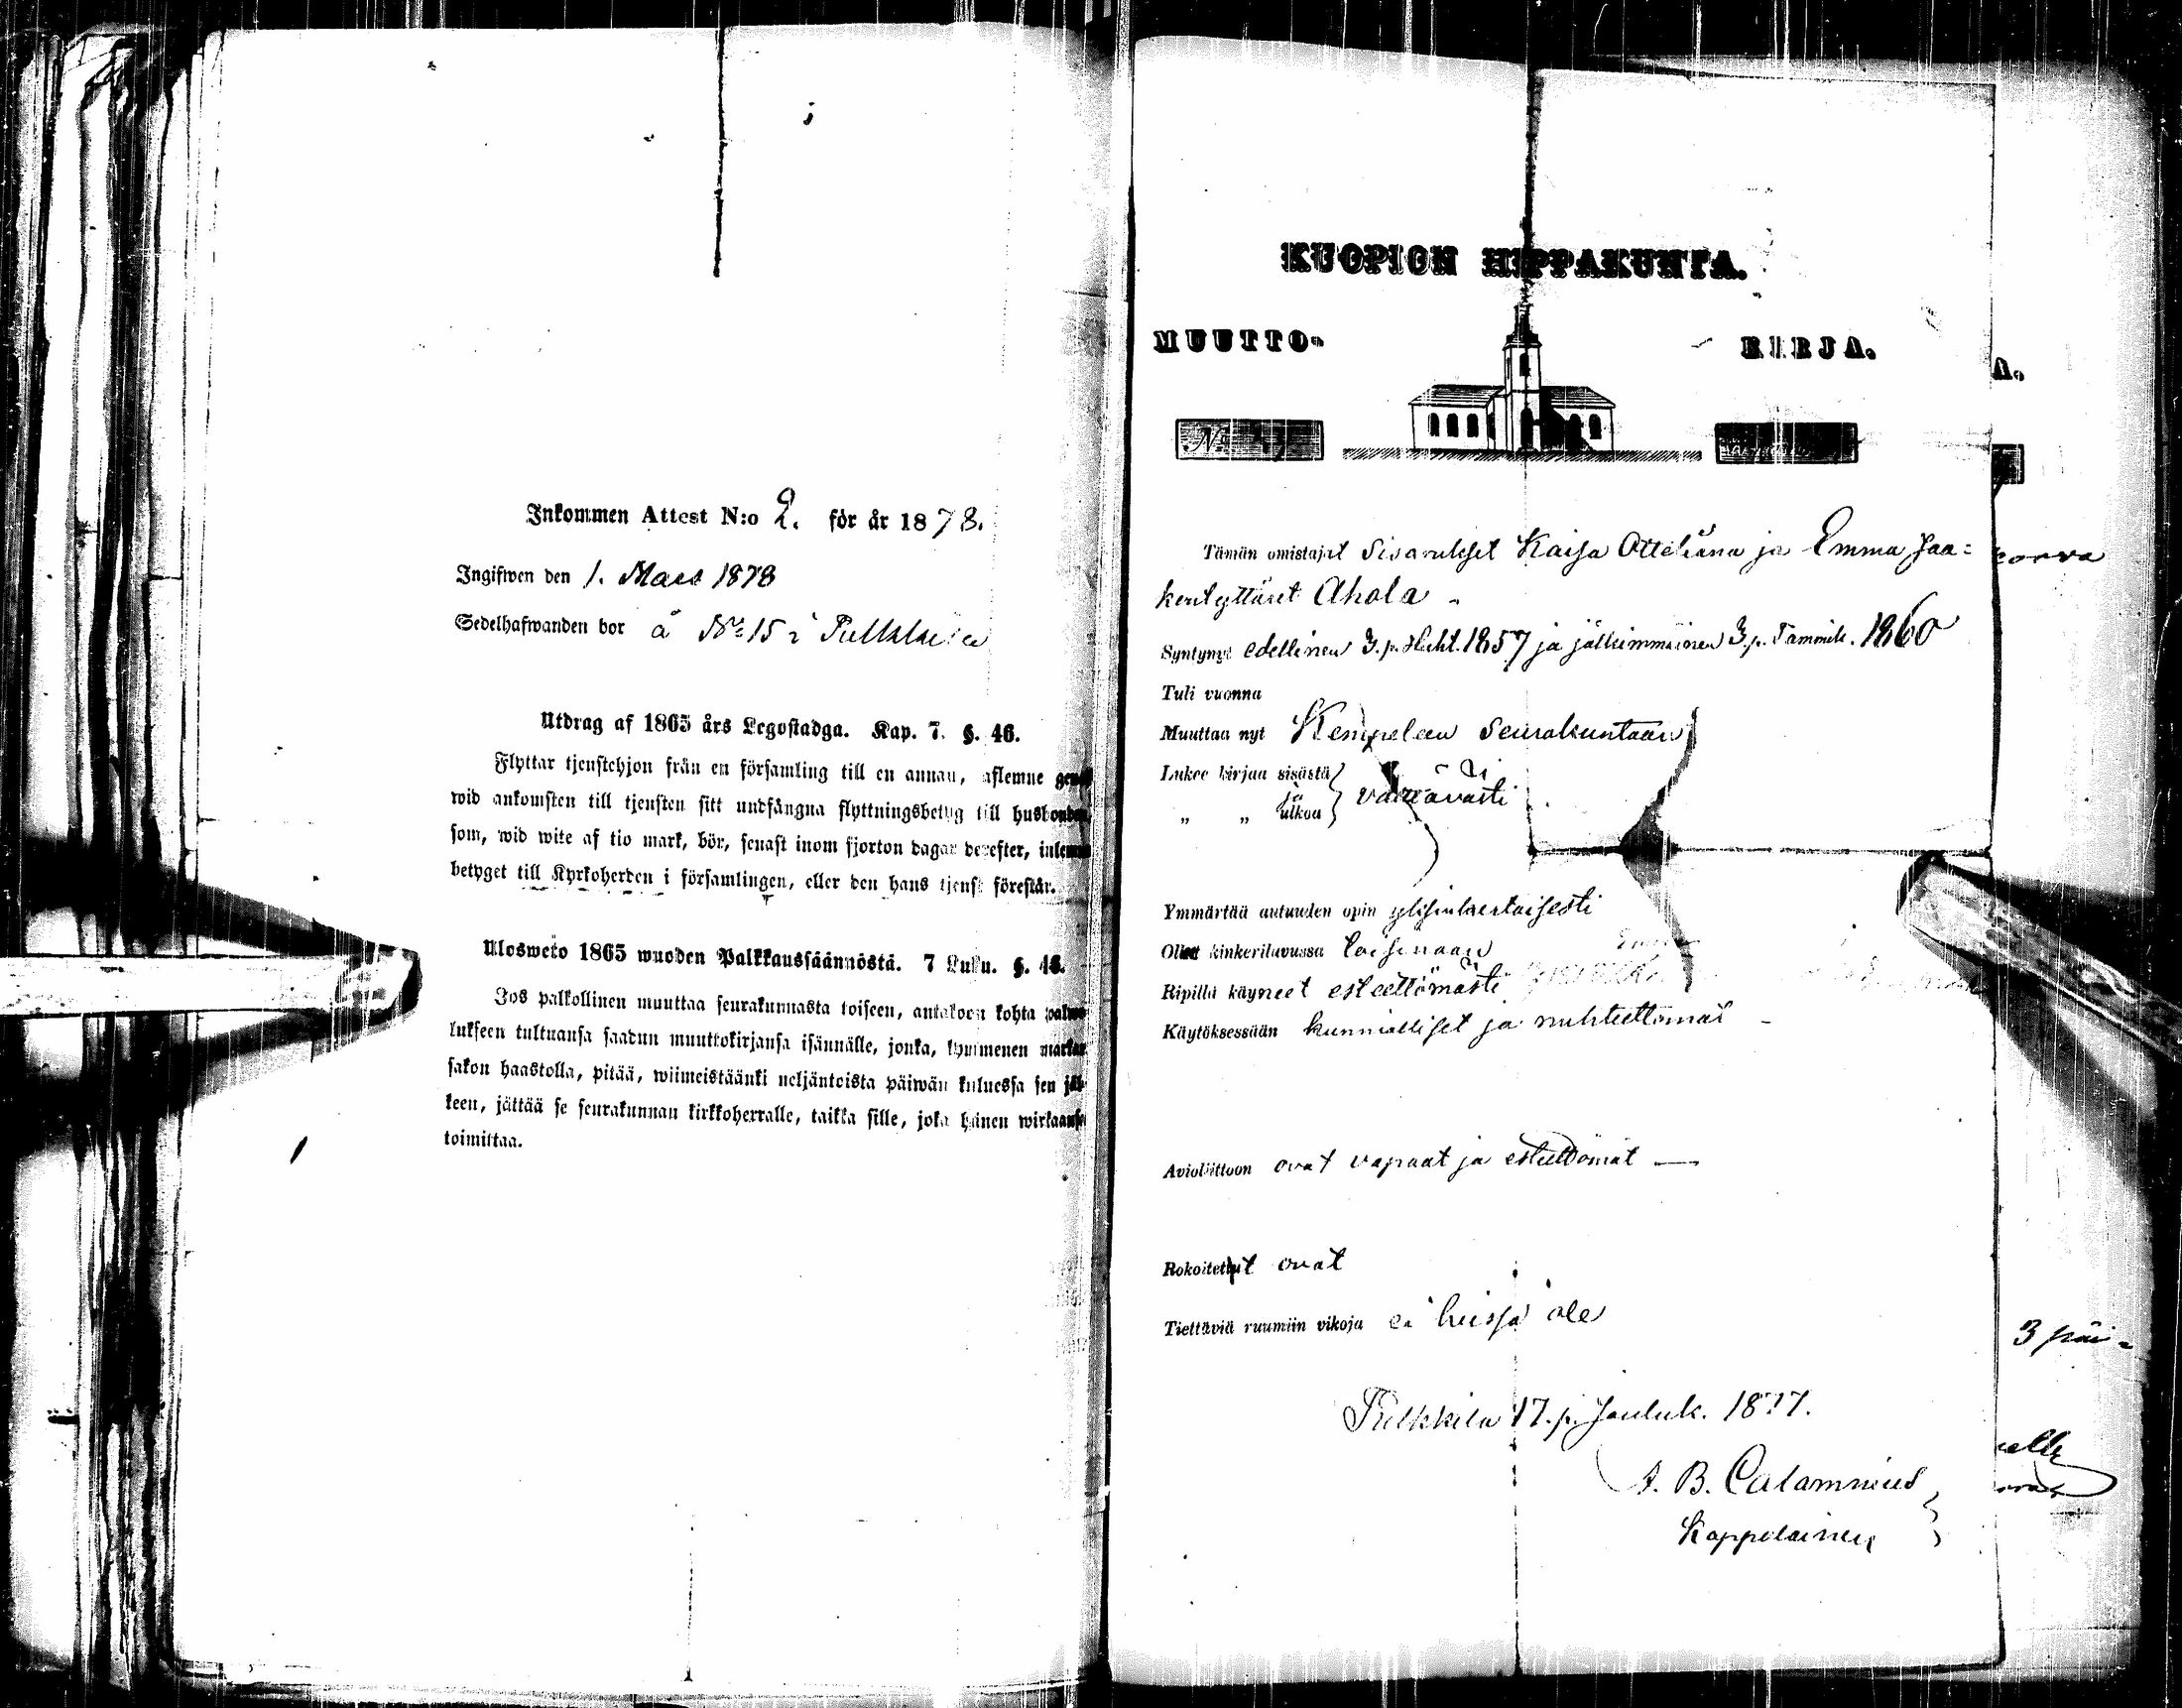 Inkommen Attest N:o 2. för år 1878.
Ingifwen den 1. Mars 1878
Sedelhafwanden bor å No 15 i
Utdrag af 1865 års Legostadga. Kap. 7. §. 46.
Flyttar tjenstehjon från en församling till en annan, aflemne genast
wid ankomsten till tjensten sitt undfångna flyttningsbetyg till husbonden,
som, wid wite af tio mark, bör, senast inom fjorton dagar derefter, inlemna
betyget till Kyrkoherden i församlingen, eller den hans tjenst förestår.
Ulosweto 1865 wuoden Palkkaussäännöstä. 7 Luku. §. 46.
Jos palkollinen muuttaa seurakunnasta toiseen, antakoon kohta palwe-
lukseen tultuansa saadun muuttokirjansa isännälle, jonka, kymmenen markan
sakon haastolla, pitää, wiimeistäänki neljäntoista päiwän kuluessa sen jäl-
keen, jättää se seurakunnan kirkkoherralle, taikka sille, joka hänen wirkaansa
toimittaa.
KUOPION HIPPAKUNTA.
MUUTTO- KIRJA.
No
Tämän omistajat Sisarukset Kaisa Otteliana ja Emma Jaa=
kontyttäret Ahola
Syntynyt edellinen 3. p. Huht. 1857 ja jälkimmäinen 3. p. Tammik. 1860
Tuli vuonna
Muuttaa nyt Kempeleen Seurakuntaan
Lukee kirjaa sisästä
ja välttävästi
" " ulkoa
Ymmärtää autuuden opin yksinkertaisesti
Olleet kinkeriluvussa toisinaan
Ripillä käyneet esteettömästi
Käytöksessään kunnialliset ja nuhteettomat
Avioliittoon ovat vapaat ja esteettömät
Rokoitetut ovat
Tiettäviä ruumiin vikoja ei heissä ole
Pulkkila 17. p. Jouluk. 1877.
A. B. Calamnius
Kappalainen
A.
korva
3 päi=